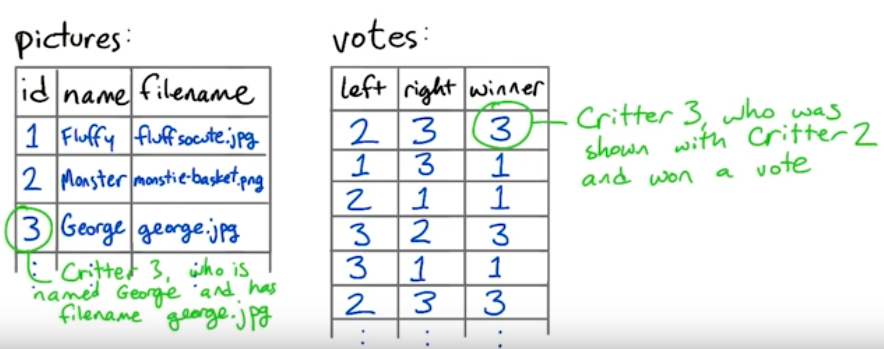 pictures:
id name filename
1 Fluffy fluffsocute.jpg
2 Monster monstie-basket.png
3 George george.jpg
: Critter 3, who is
named George and has
filename george.jpg
votes:
left right winner
2 3 3
1 3 1
2 1 1
3 2 3
3 1 1
2 3 3
: : :
Critter 3, who was
shown with Critter 2
and won a vote